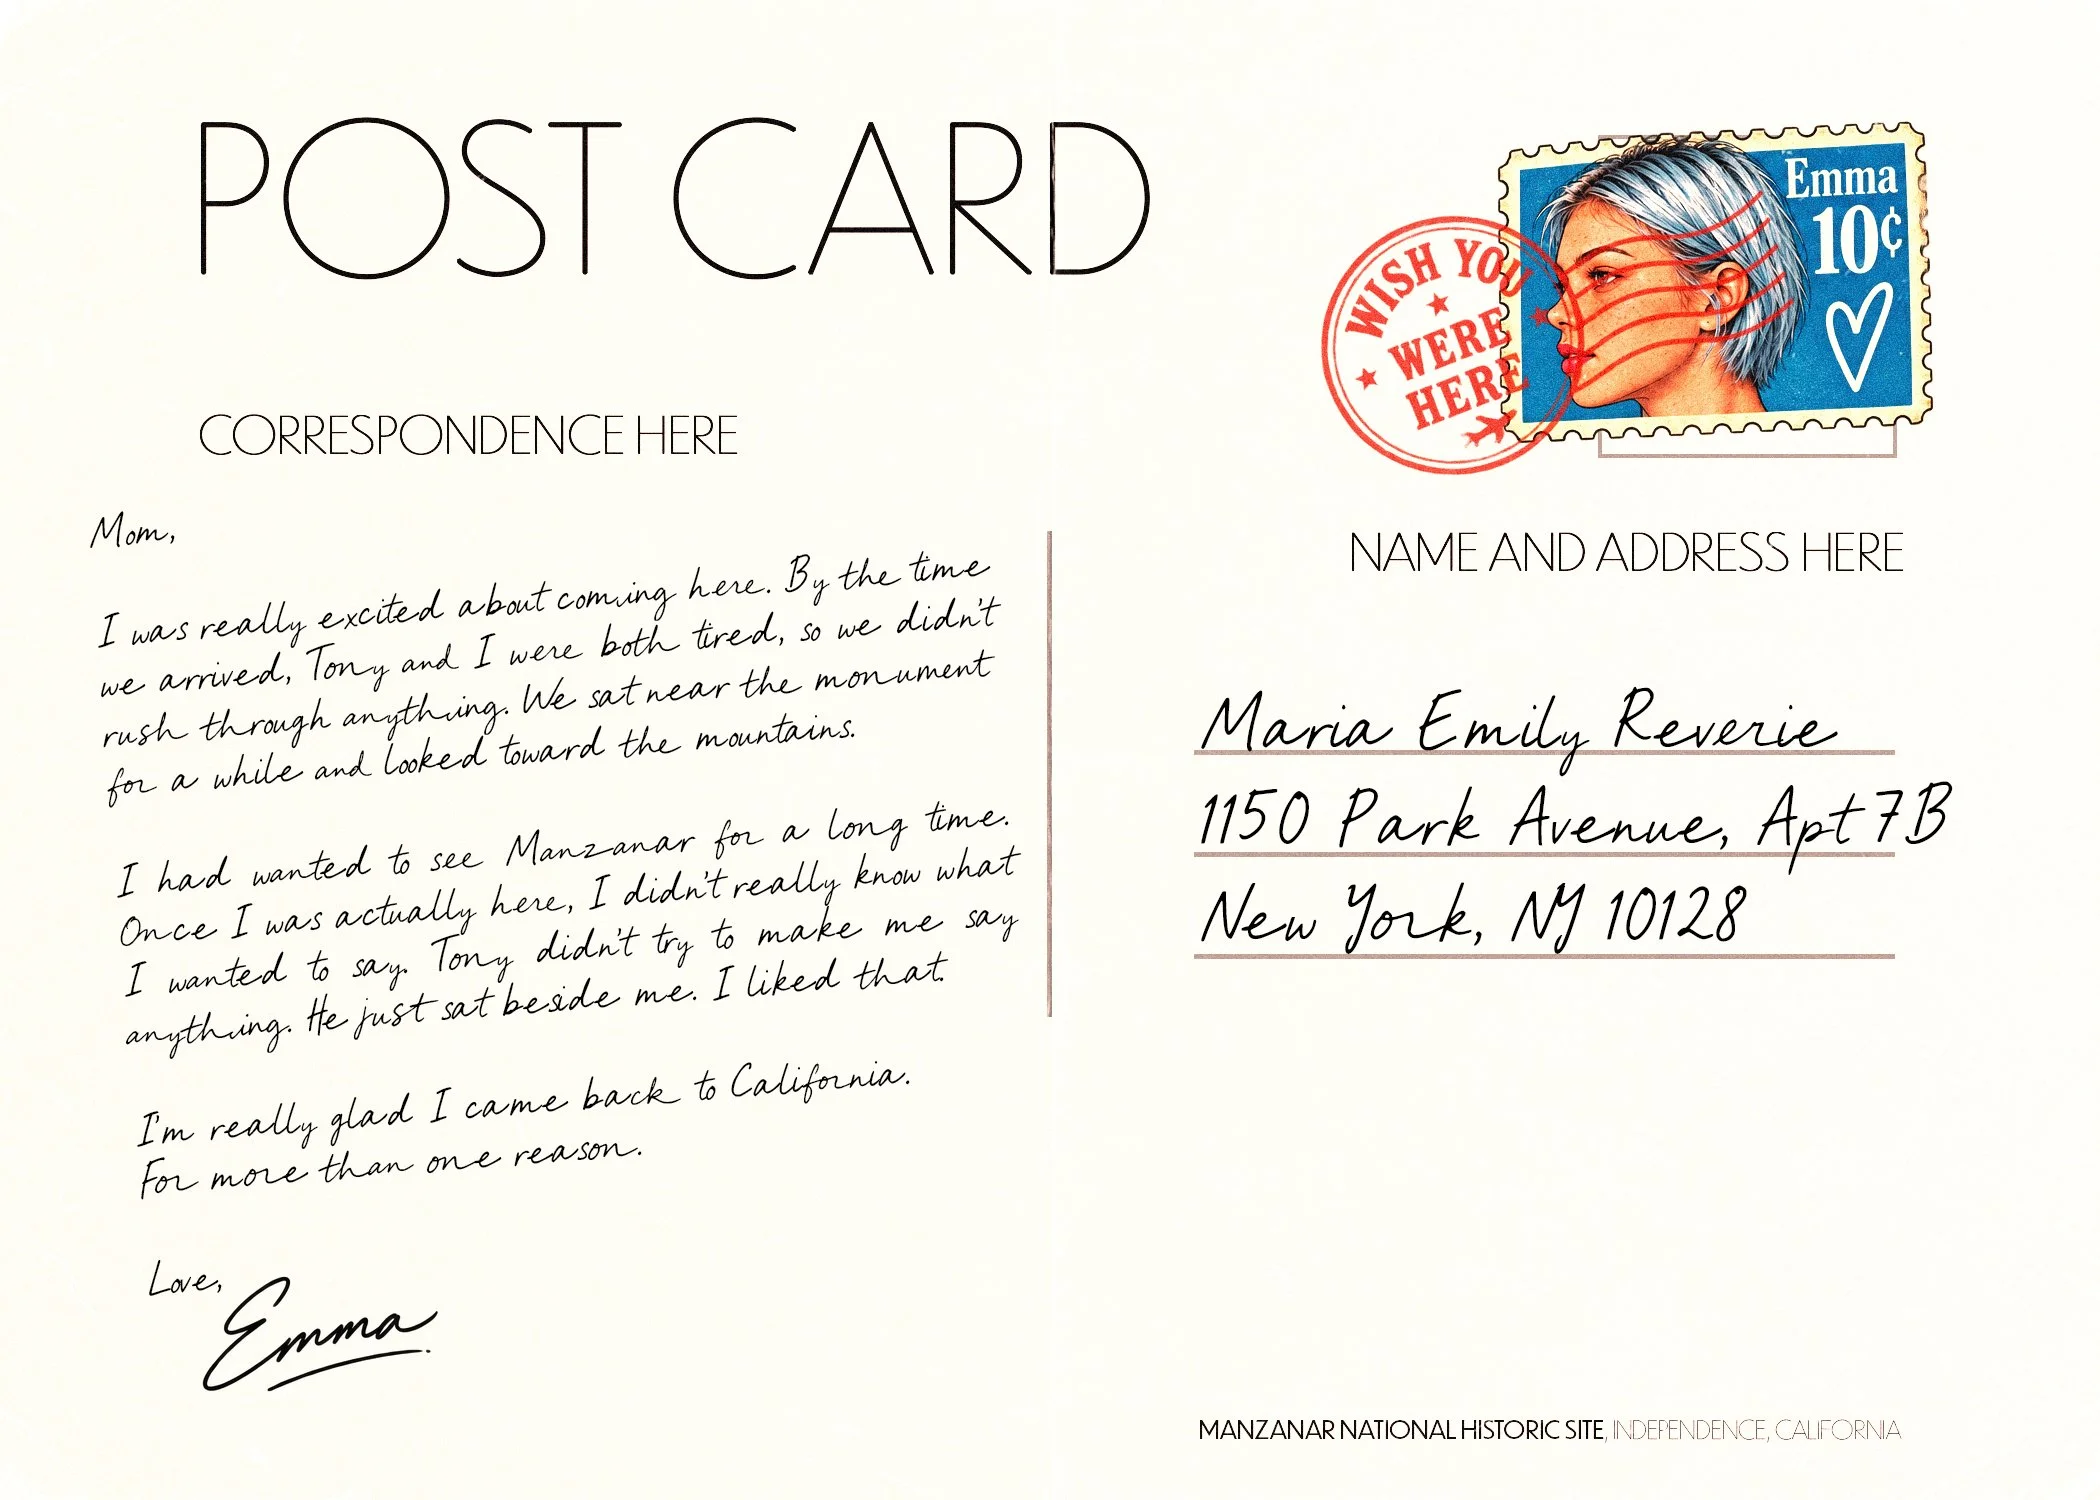 POST CARD
Emma
10¢
WISH YOU
WERE
HERE
CORRESPONDENCE HERE
Mom,
I was really excited about coming here. By the time
we arrived, Tony and I were both tired, so we didn't
rush through anything. We sat near the monument
for a while and looked toward the mountains.
I had wanted to see Manzanar for a long time.
Once I was actually here, I didn't really know what
I wanted to say. Tony didn't try to make me say
anything. He just sat beside me. I liked that.
I'm really glad I came back to California.
For more than one reason.
Love,
Emma
NAME AND ADDRESS HERE
Maria Emily Reverie
1150 Park Avenue, Apt 7B
New York, NY 10128
MANZANAR NATIONAL HISTORIC SITE, INDEPENDENCE, CALIFORNIA